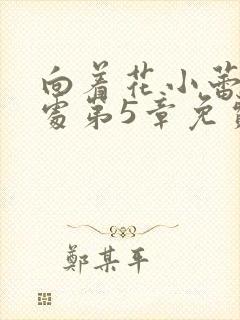 向着花小蕾
处第5章免费
鄭某年